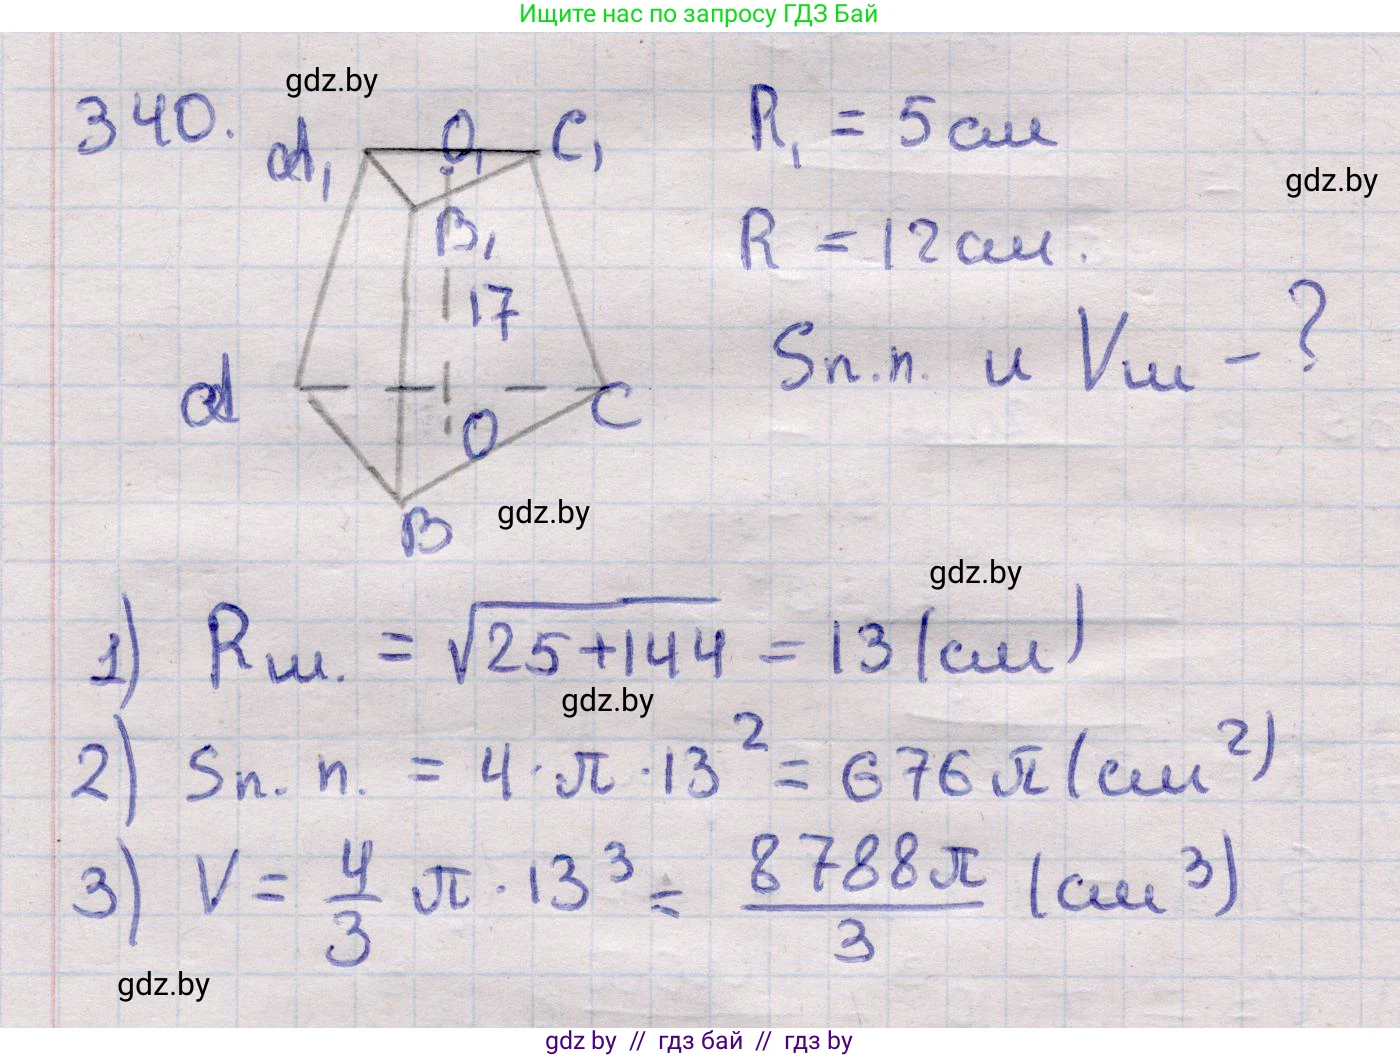 Ищите нас по запросу ГДЗ Бай
gdz.by
340.
A₁ O₁ C₁
R₁ = 5 см
gdz.by
B₁
R = 12 см.
17
Sп.п. и Vш - ?
A
O C
gdz.by
B
gdz.by
1) Rш. = √25+144 = 13 (см)
gdz.by
2) Sп.п. = 4·π·13² = 676π (см²)
3) V = 4/3 π·13³ = 8788π/3 (см³)
gdz.by
gdz by // гдз бай // гдз by